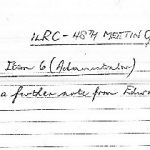 LRC - 48th MEETING
Item 6 (Administrator)
a further note from Edwa